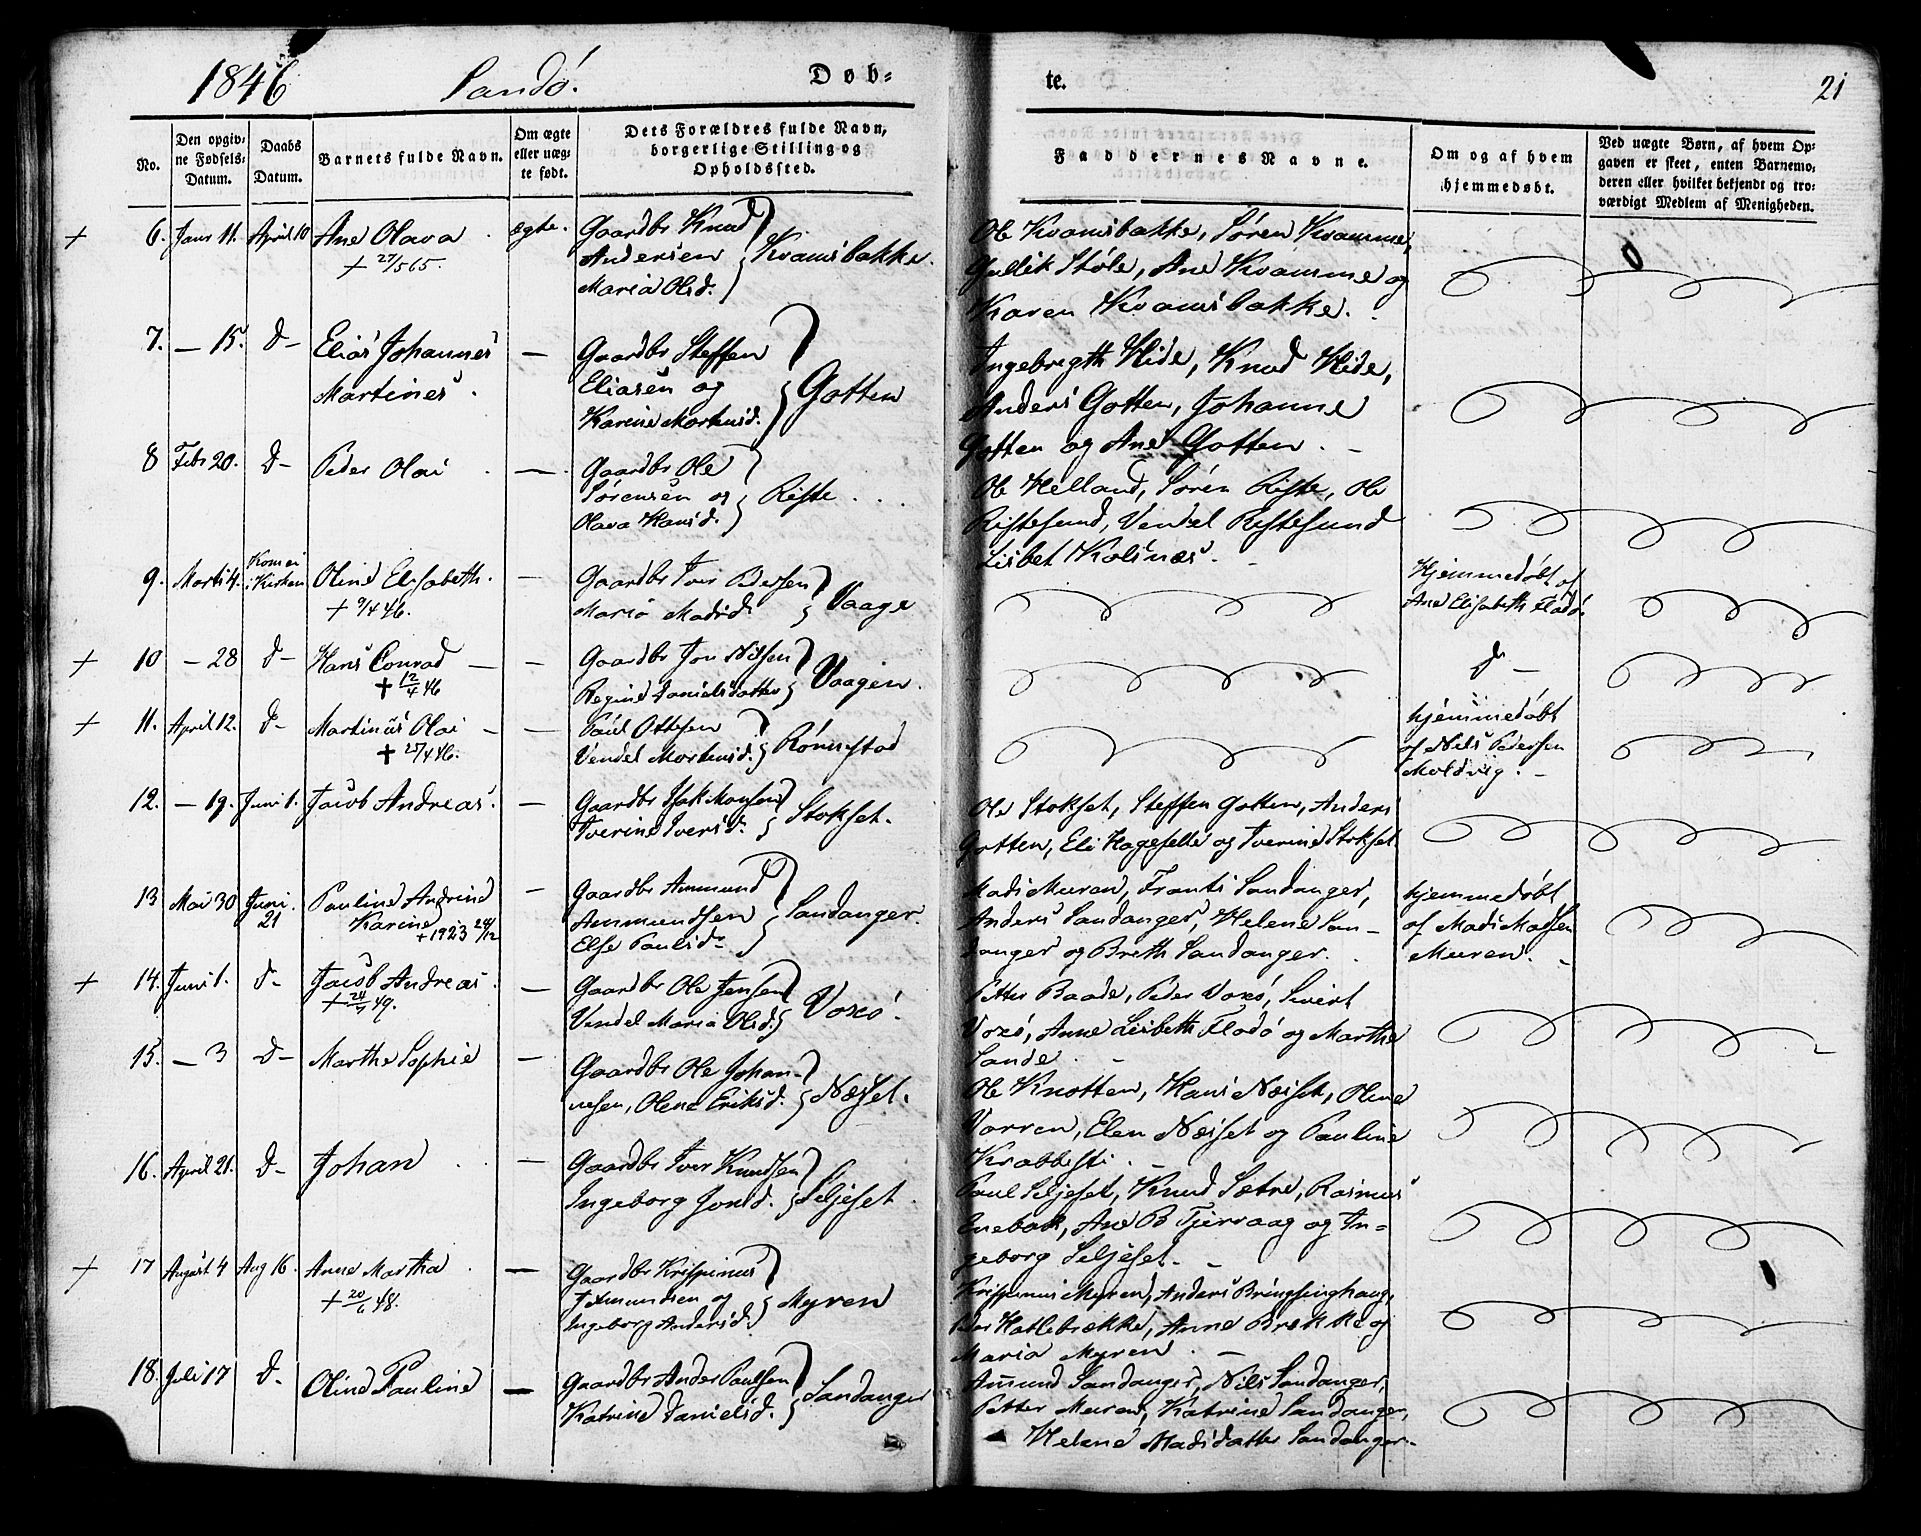 1846 Sandö. Døb=
No.
Den opgiv=
ne Fødsels=
Datum.
Daabs
Datum.
Barnets fulde Navn.
Om ægte
eller uæg=
te født.
Dets Forældres fulde Navn,
borgerlige Stilling og
Opholdssted.
6. Janr 11. April 10 Ane Olava ægte. Gaardbr Knud
+ 27/5 65. Andersen Kvamsbakke.
Maria Olsd.
7. — 15. do Elias Johannes — Gaardbr Steffen
Martines. Eliasen og Gotten
Karine Mortensd.
8 Febr 20. do Peder Olai — Gaardbr Ole
Sørensen og Riste
Olava Hansd.
9. Marts 4. Kom ei
i Kirken Oline Elisabeth. — Gaardbr Iver Pedersen
+ 9/4 46. Maria Madsd. Vaage
10 — 28 do Hans Conrad — Gaardbr Jon Nilsen
+ 12/4 46 Regine Danielsdatter Vaagen.
11. April 12. do Martinus Olai — Paul Ottesen
+ 25/4 46. Vendel Mortensd. Rönnestad
12. — 19. Juni 1. Jacob Andreas. — Gaardbr Isak Monsen
Iverine Iversd. Stokset.
13 Mai 30 Juni
21 Pauline Andrine — Gaardbr Ammund
Karine Ammundsen Sandanger.
+ 1923 24/12 Else Paulsd.
14. Juni 1. do Jacob Andreas — Gaardbr Ole Jensen
+ 24/4 49. Vendel Maria Olsd. Voxö.
15. — 3 do Marthe Sophie — Gaardbr Ole Johan-
nesen, Olene Eriksd. Næsset.
16. April 21. do Johan — Gaardbr Iver Knudsen
Ingeborg Jonsd. Siljeset.
17 August 4 Aug 16. Anne Martha — Gaardbr Krispinus
+ 20/6 48. og Myren
Ingeborg Andersd.
18. Juli 17 do Oline Pauline — Gaardbr Anders Paulsen
Katrine Danielsd. Sandanger
te. 21
Faddernes Navne.
Om og af hvem
hjemmedøbt.
Ved uægte Børn, af hvem Op=
gaven er skeet, enten Barnemo=
deren eller hvilket bekjendt og tro=
værdigt Medlem af Menigheden.
Ole Kvamsbakke, Søren Kvamme,
Gullik Støle, Ane Kvamme og
Karen Kvamsbakke.
Ingebrigth Hide, Knud Hide,
Anders Gotten, Johanne
Gotten og Ane Gotten.
Ole Helland, Søren Riste, Ole
Ristesund, Vendel Ristesund
Lisbet Kolsnæs.
Hjemmedøbt af
Ane Elisabeth Flaaö.
do —
hjemmedøbt
af Nils Pedersen
Moldvig.
Ole Stokset, Steffen Gotten, Anders
Gotten, Eli Hageselle og Iverine Stokset.
Mads Muren, Frants Sandanger,
Anders Sandanger, Helene San-
danger og Breth Sandanger.
hjemmedøbt
af Mads Madsen
Muren.
Petter Baade, Peder Voxö, Sivert
Voxö, Anne Lisbeth Flaaö og Marthe
Sande.
Ole Knotten, Hans Næsset, Oline
Varren, Elen Næsset og Pauline
Krabbesti.
Paul Siljeset, Knud Sætre, Rasmus
Enebak, Ane B Tjervaag og In-
geborg Siljeset.
Krispinus Myren, Anders Bringsinghaug,
Peder Hatlebrække, Anne Brekke og
Maria Myren.
Amund Sandanger, Nils Sandanger,
Petter Muren, Katrine Sandanger,
Helene Madsdatter Sandanger.